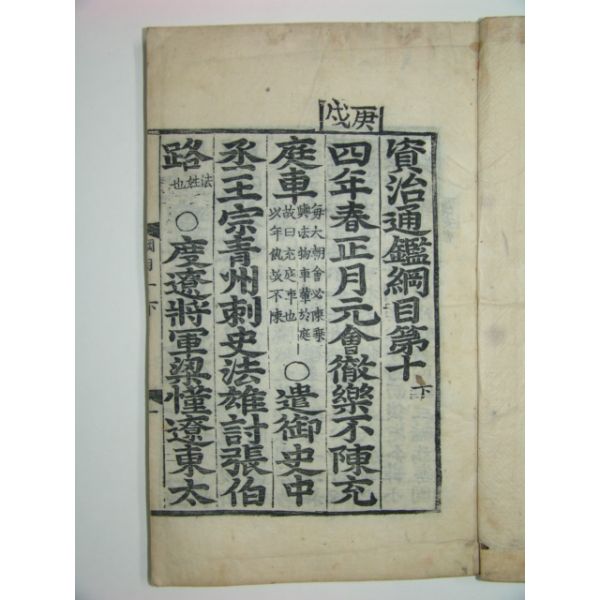 庚戌
資治通鑑綱目第十下
四年春正月元會徹樂不陳充
庭車
每大朝會必陳乘
輿法物車輦於庭
故曰充庭車也
以年饑故不陳
○遣御史中
丞王宗青州刺史法雄討張伯
路
法姓也
○度遼將軍梁慬遼東太